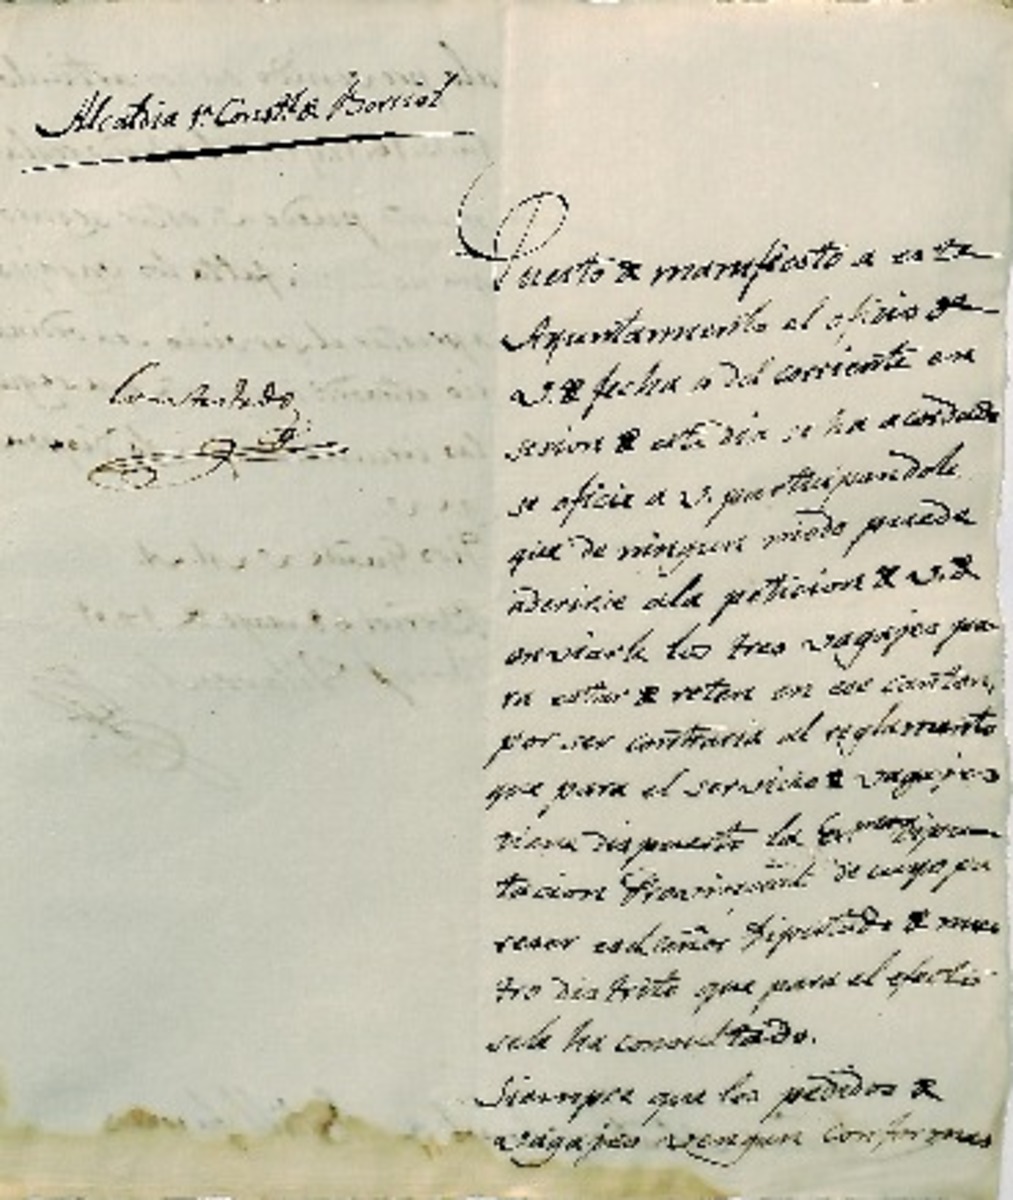 Alcaldia 1ª Constl. de Borriol
Contestado
Puesto de manifiesto a este
Ayuntamiento el oficio de
V. de fecha 2 del corriente en
sesion de este dia se ha acordado
se oficie a V. participandole
que de ningun modo puede
aderirse ala peticion de V. de
enviarle los tres vagajes pa
ra estar de reten en ese canton,
por ser contraria al reglamento
que para el servicio de vagajes
tiene dispuesto la Exma. Dipu
tacion Provincial de cuyo pa
recer es el señor Diputado de nues
tro distrito que para el efecto
sele ha consultado.
Siempre que los pedidos de
vagajes vengan conformes